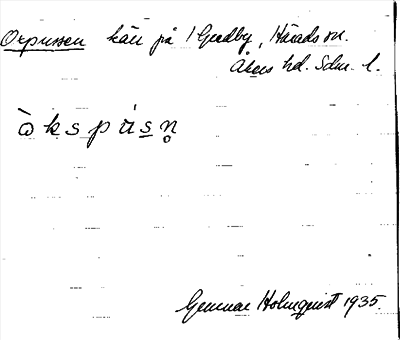 Oxpussen kärr på 1 Gredby, Härads sn.
Åkers hd. Sdm. l.
ò k s p ú s n̥
Gunnar Holmquist 1935.